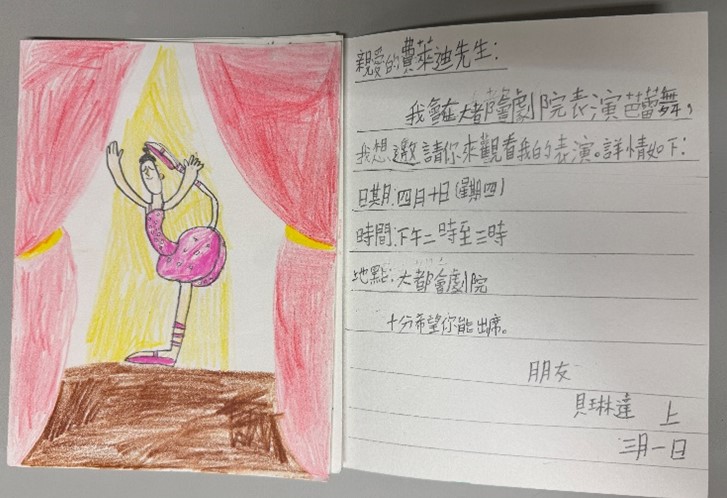 親愛的費萊迪先生：
我會在大都會劇院表演芭蕾舞，
我想邀請你來觀看我的表演。詳情如下：
日期：四月十日（星期四）
時間：下午二時至三時
地點：大都會劇院
十分希望你能出席。
朋友
貝琳達 上
三月一日